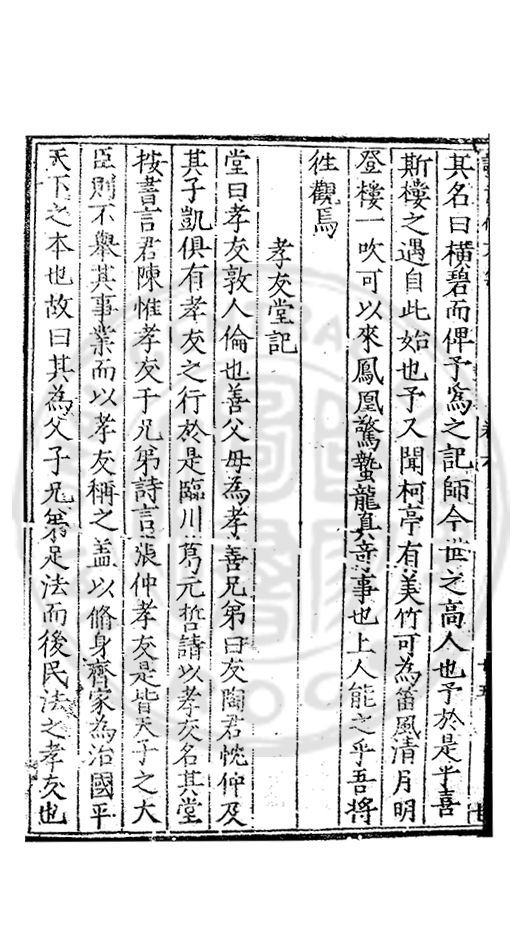 其名曰橫碧而俾予為之記師今世之高人也予於是乎喜
斯樓之遇自此始也予又聞柯亭有美竹可為笛風清月明
登樓一吹可以來鳳凰驚蟄龍真竒事也上人能之乎吾將
徃觀焉
孝友堂記
堂曰孝友敦人倫也善父母為孝善兄弟曰友陶君忱仲及
其子凱俱有孝友之行於是臨川葛元哲請以孝友名其堂
按書言君陳惟孝友于兄弟詩言張仲孝友是皆天子之大
臣則不舉其事業而以孝友稱之盖以脩身齊家為治國平
天下之本也故曰其為父子兄弟足法而後民法之孝友也